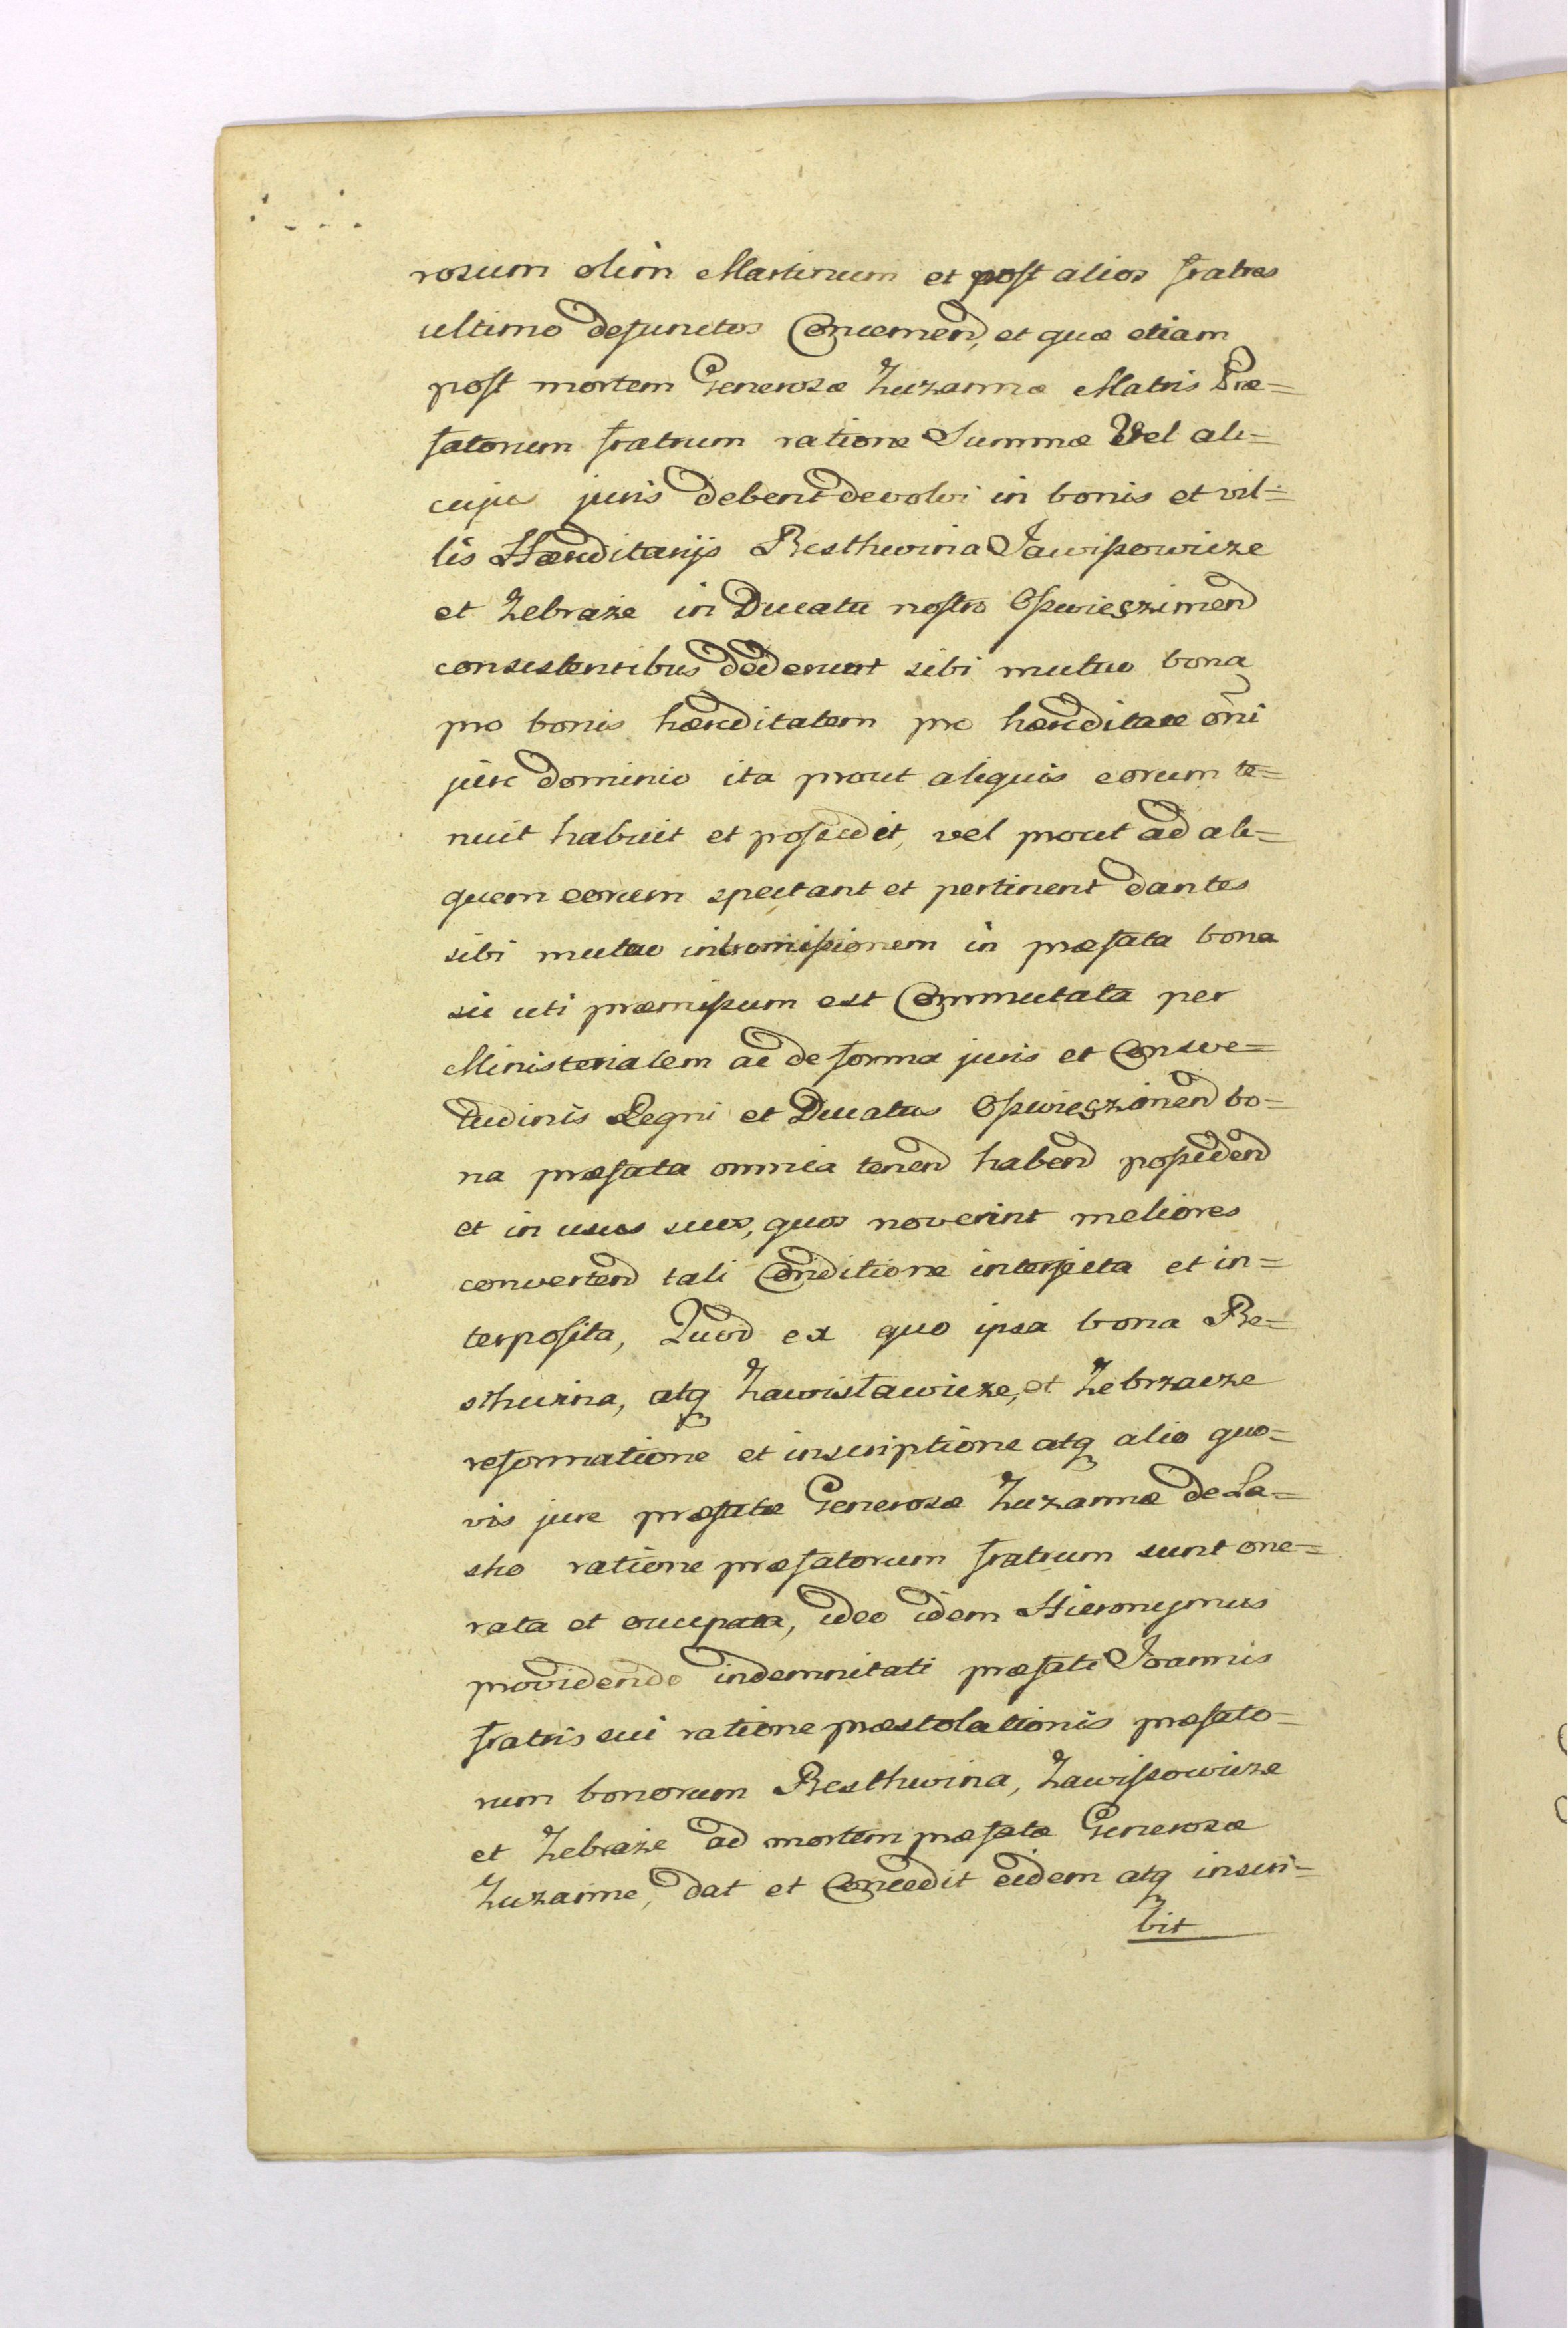 rosum olim Martinum et post alios fratres
ultimo defunctos Concernen, et quæ etiam
post mortem Generosæ Zuzannæ Matris Præ=
fatorum fratrum ratione Summæ Vel ali=
cujus juris debent devolvi in bonis et vil=
lis Hæreditarijs Besthwina Jawiszowicze
et Zebraze in Ducatu nostro Oswięczimen
consistentibus dederunt sibi mutuo bona
pro bonis hæreditatem pro hæreditate oñi
jure dominio ita prout aliquis eorum te=
nuit habuit et possedit, vel prout ad ali=
quem eorum spectant et pertinent dantes
sibi mutuo intromissionem in præfata bona
sic uti præmissum est Commutata per
Ministerialem ac de forma juris et Consve=
tudinis Regni et Ducatus Oswięczimen bo=
na præfata omnia tenen haben possiden
et in usus suos, quos noverint meliores
converten tali Conditione interjecta et in=
terposita, Quod ex quo ipsa bona Be=
sthwina, atq Zawistawicze, et Zebrzacze
reformatione et inscriptione atq alio quo=
vis jure præfatæ Generosæ Zuzannæ de La=
sko ratione præfatorum fratrum sunt one=
rata et occupata, ideo idem Hieronymus
providendo indemnitati præfati Joannis
fratris sui ratione præstolationis præfato=
rum bonorum Besthwina, Zawiszowicze
et Zebraze ad mortem præfatæ Generosæ
Zuzanne, dat et Concedit eidem atq inscri=
bit